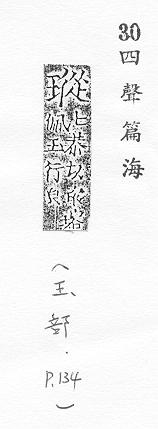 30
四聲篇海
瑽
七恭切
佩玉行皃
(玉部．P.134)